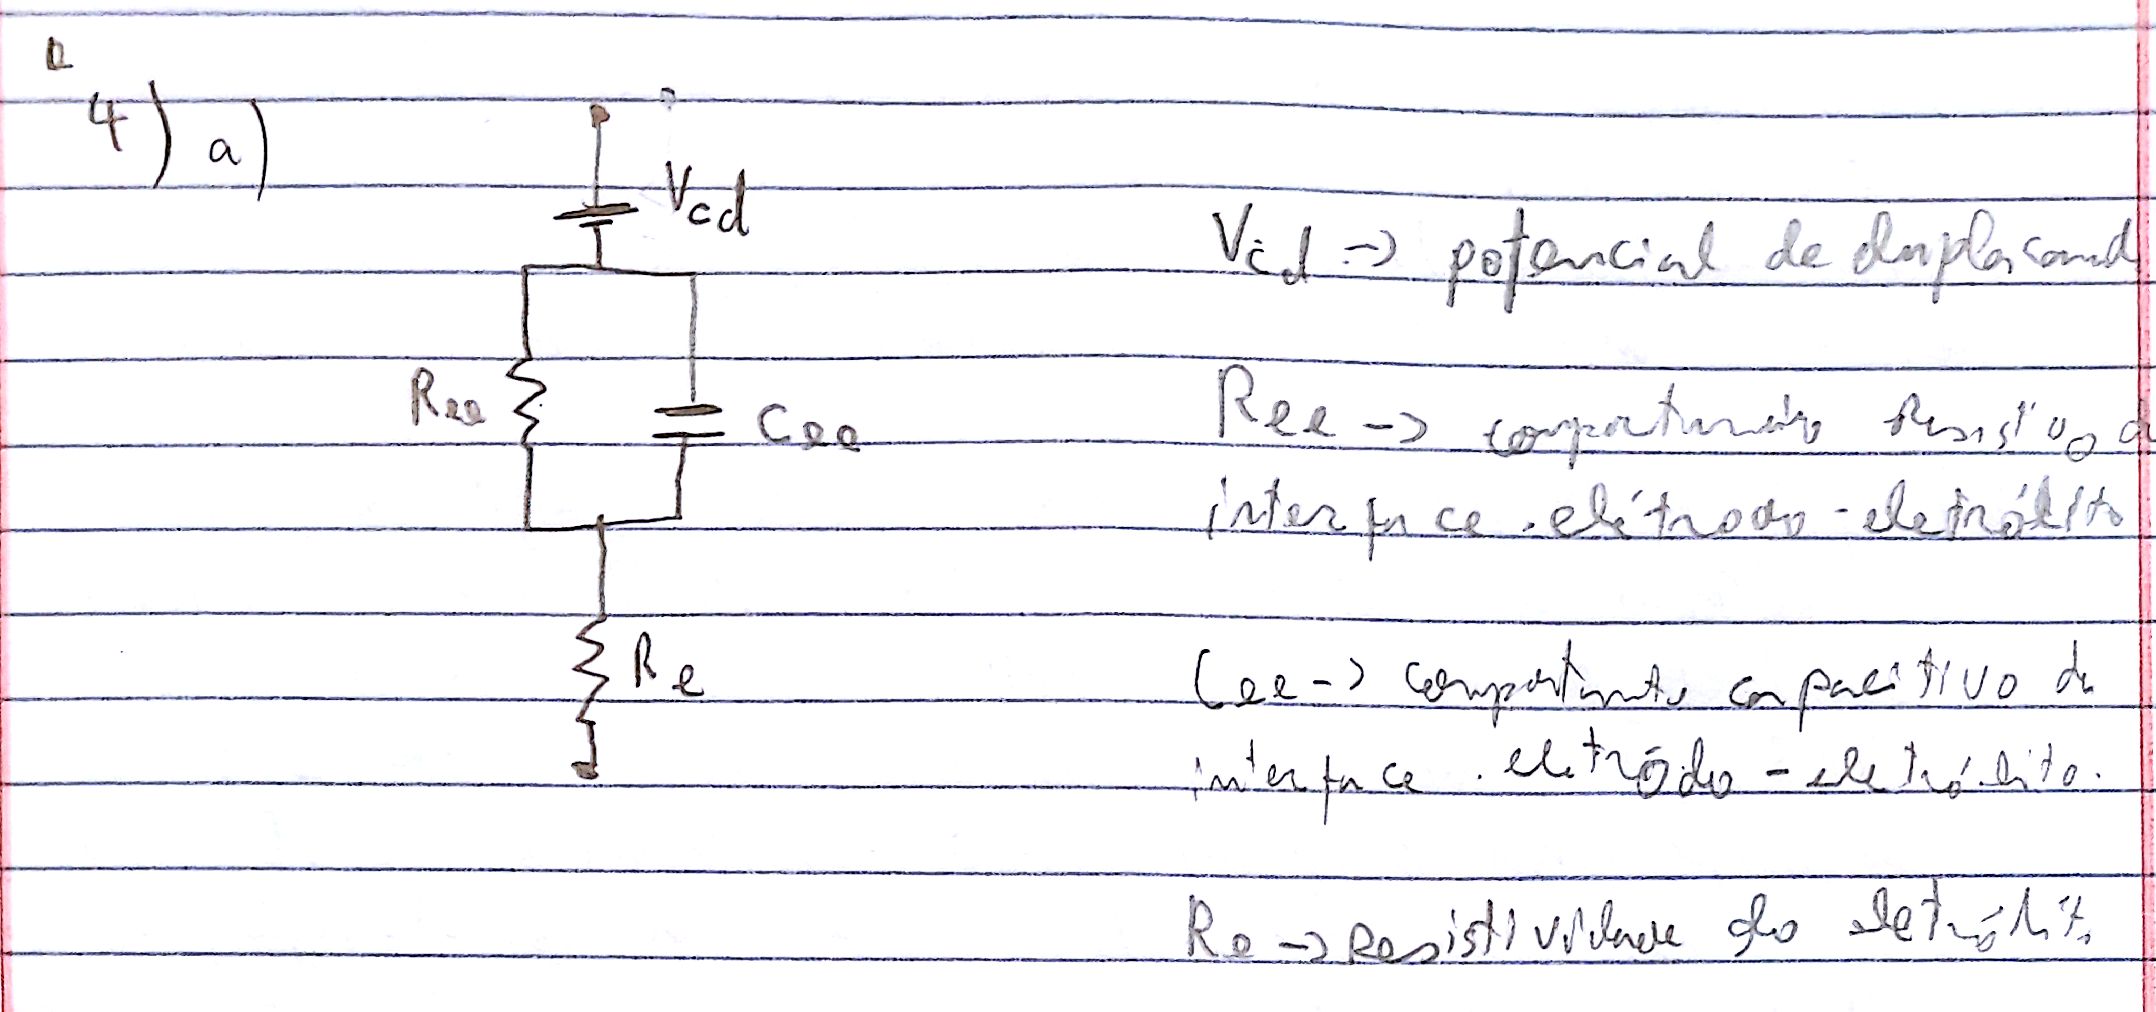 4) a)
Vcd
Vcd -> potencial de
Ree
Cee
Ree -> comportamento Resistivo da
interface eletrodo-eletrólito
Re
Cee -> comportamento capacitivo da
interface eletródo - eletrólito.
Re -> Resistividade do eletrólito